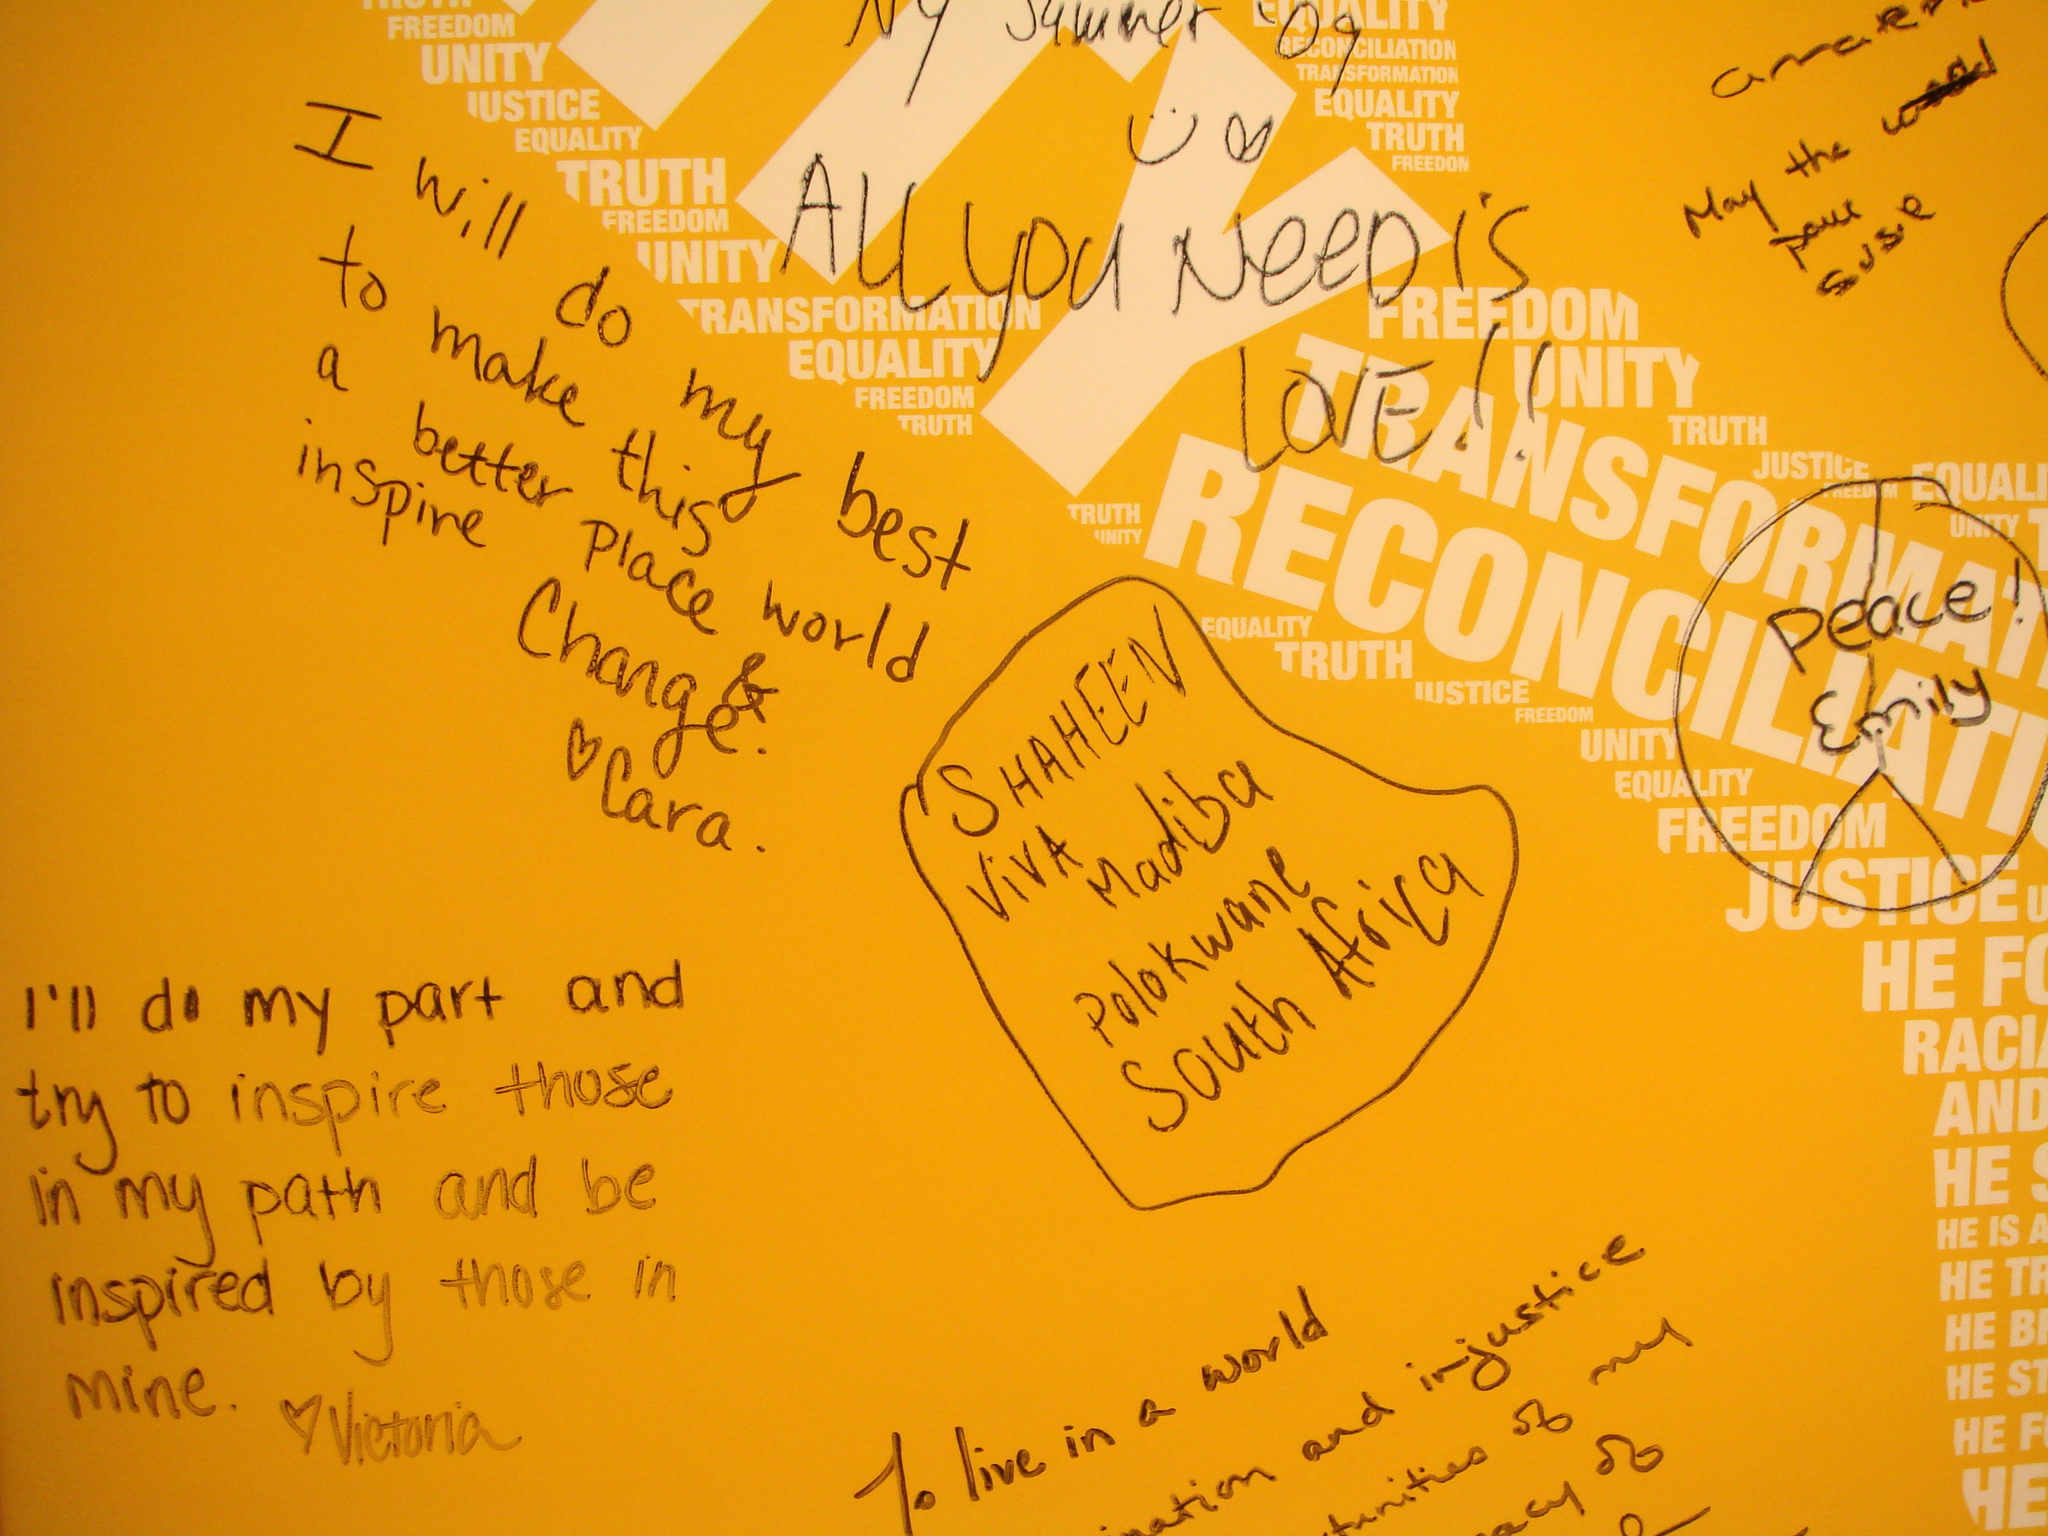 NY Summer '09
All you Need is
LOVE!!
I will do my best
to make this world
a better place &
inspire Change.
Cara.
I'll do my part and
try to inspire those
in my path and be
inspired by those in
mine.
Victoria
SHAHEEN
VIVA Madiba
Polokwane
South Africa
Peace!
Emily
May the
Susie
To live in a world
and injustice
of my
of
FREEDOM
UNITY
JUSTICE
EQUALITY
TRUTH
FREEDOM
UNITY
TRANSFORMATION
EQUALITY
FREEDOM
TRUTH
EQUALITY
RECONCILIATION
TRANSFORMATION
EQUALITY
TRUTH
FREEDOM
FREEDOM
UNITY
TRUTH
JUSTICE
FREEDOM
TRUTH
UNITY
EQUALITY
TRUTH
JUSTICE
FREEDOM
UNITY
EQUALITY
FREEDOM
JUSTICE
UNITY
HE
AND
HE
HE IS
HE
HE
HE
HE
HE